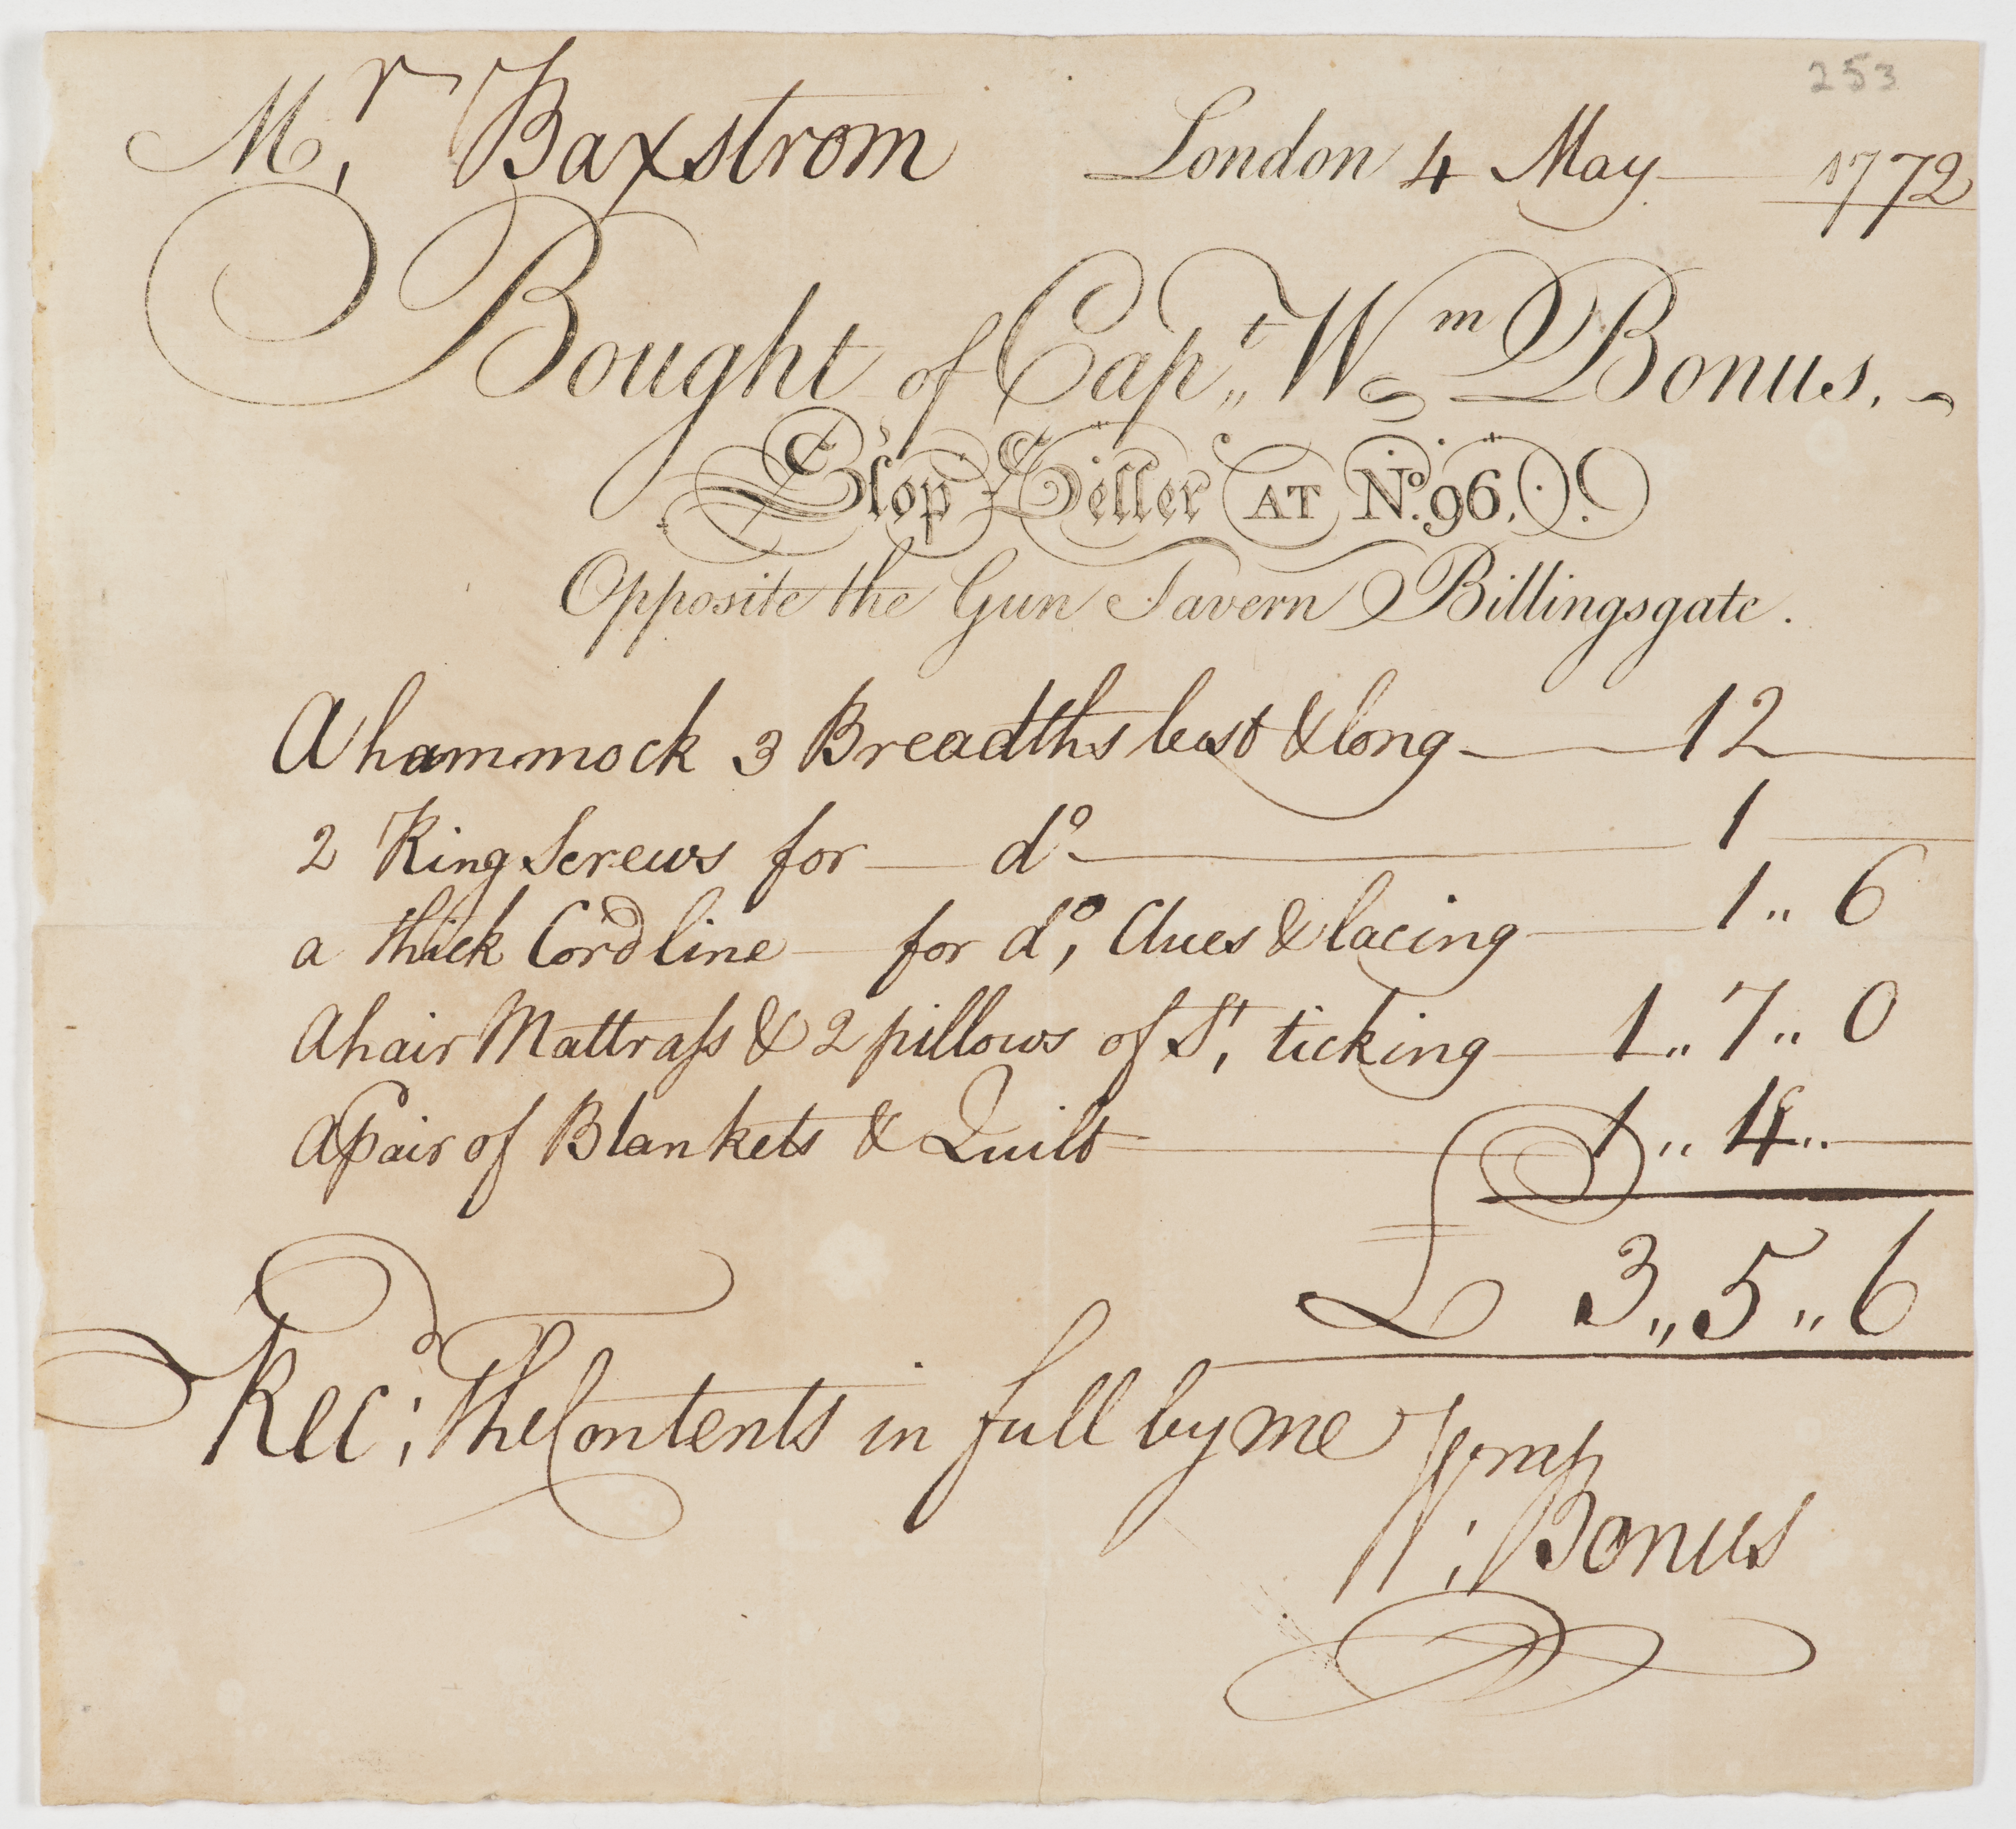 253
Mr. Baxstrom London 4 May 1772
Bought of Capt. Wm Bonus.
Slop Seller AT No. 96,
Opposite the Gun Tavern Billingsgate.
A hammock 3 Breadths best & long 12
2 Ring Screws for do 1
a thick Cord line for do, Clues & lacing 1 " 6
A hair Mattrass & 2 pillows of St, ticking 1 " 7 " 0
A Pair of Blankets & Quilt 1 " 4 "
£ 3 " 5 " 6
Recd: The Contents in full by me
W: Bonus